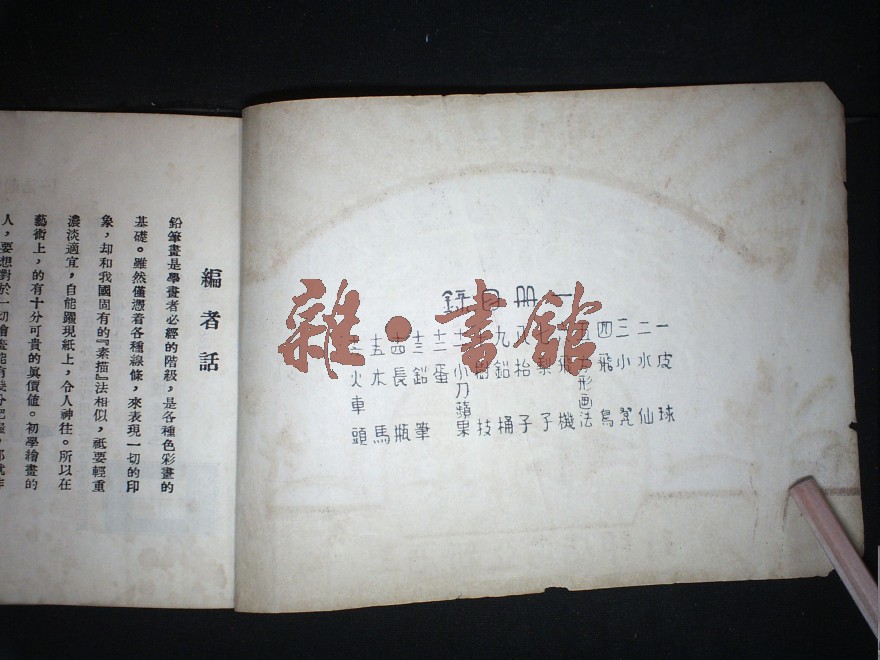 一册目錄
一 皮球
二 水仙
三 小凳
四 飛鳥
形画法
機
七 梨子
八 枱子
九 鉛桶
技
十一 小刀蘋果
十二 蛋
十三 鉛筆
十四 長瓶
十五 木馬
火車頭
編者話
鉛筆畫是學畫者必經的階級，是各種色彩畫的
基礎。雖然僅憑着各種線條，來表現一切的印
象，却和我國固有的『素描』法相似，祇要輕重
濃淡適宜，自能躍現紙上，令人神往。所以在
藝術上，的有十分可貴的眞價値。初學繪畫的
人，要想對於一切繪畫能有幾分把握，
雜·書館